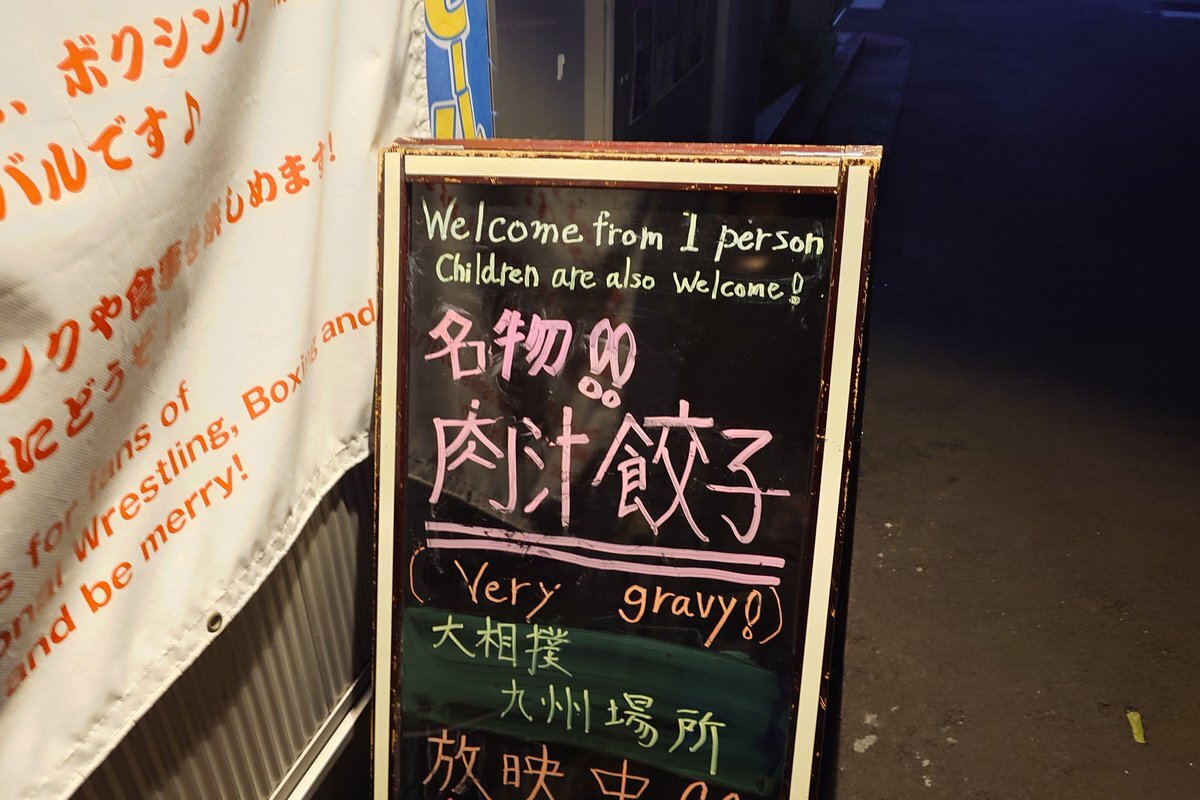 ボクシング
バルです♪
楽しめます!
ングや食事
にどうぞ!
for fans of
Wrestling, Boxing and
and be merry!
Welcome from 1 person
Children are also Welcome!
名物!!
肉汁餃子
(Very gravy!)
大相撲
九州場所
放映中!!